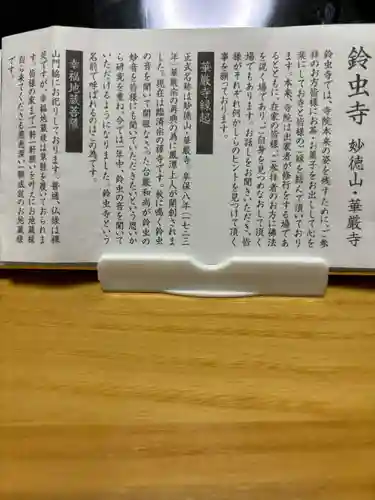 鈴虫寺 妙徳山・華厳寺
鈴虫寺では、寺院本来の姿を残すために、ご参
詣のお方皆様にお茶・お菓子をお出しして心を
楽にしてお寺と皆様のご縁を結んで頂いており
ます。本来、寺院は出家者が修行をする場であ
るとともに、在家の皆様、ご参拝者のお方に佛法
を説く場であり、ご自身を見つめなおして頂く
場でもあります。お話しをお聞きいただき、皆
様がそれぞれ何かしらのヒントを見つけて頂く
事を願っております。
華厳寺縁起
正式名称は妙徳山・華厳寺。享保八年（一七二三
年）華厳宗の再興の為に鳳潭上人が開創されま
した。現在は臨済宗の禅寺です。秋に鳴く鈴虫
の音を聞いて開眼なさった台巖和尚が鈴虫の
妙音を皆様にも聞いていただきたいという思いか
ら研究を重ね、今では一年中、鈴虫の音を聞いて
いただけるようになりました。鈴虫寺という
名前で呼ばれるのはこの為です。
幸福地蔵菩薩
山門脇にお祀りしております。普通、仏様は裸
足ですが、幸福地蔵様は草鞋を履いておられま
す。皆様の家まで一軒一軒願いを叶えにお地蔵様
自ら来てくださる慈悲深い願成就のお地蔵様
です。